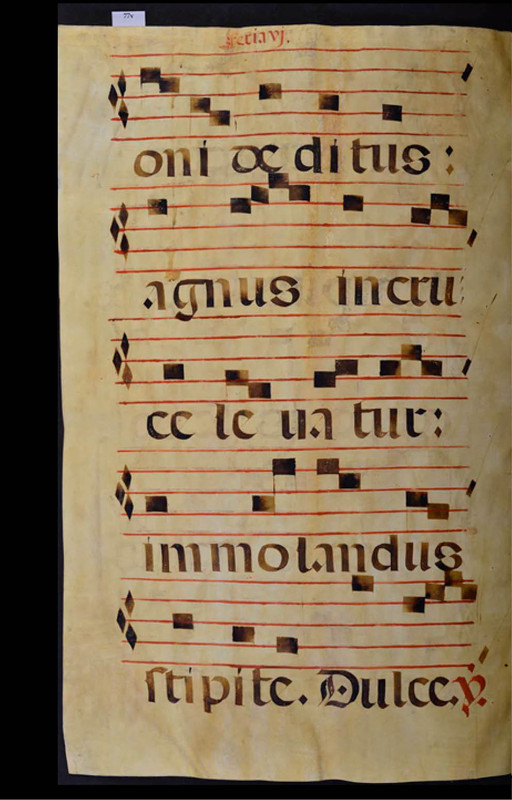 77v
Feria vj.
oni deditus:
agnus in cru
ce leuatur:
immolandus
stipite. Dulce. V.